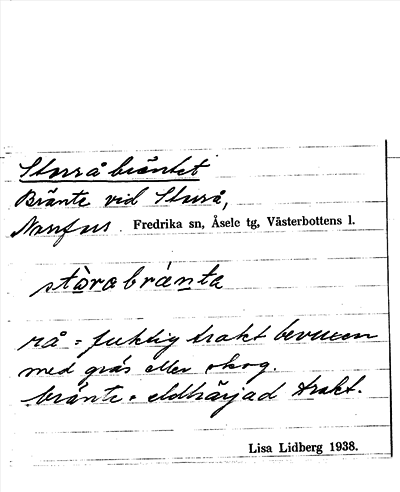 Storråbräntet
Bränte vid Storrå,
Fredrika sn, Åsele tg, Västerbottens l.
stòrabránta
rå = fuktig trakt bevuxen
med gräs eller skog.
bränte = eldhärjad trakt.
Lisa Lidberg 1938.